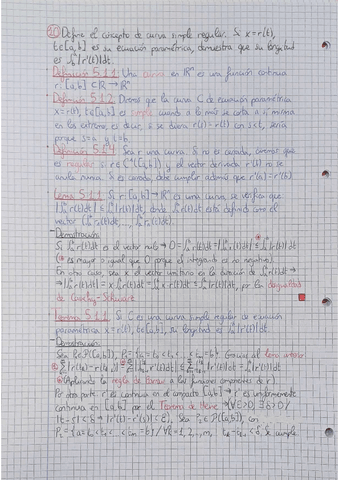 Define el concepto de curva simple regular. Si x=r(t),
t∈[a,b] es su ecuación paramétrica, demuestra que su longitud
es ∫ₐᵇ|r'(t)|dt
Definición 5.1.1 Una curva en ℝⁿ es una función continua
r:[a,b]⊂ℝ→ℝⁿ
Definición 5.1.2 Diremos que la curva C de ecuación paramétrica
x=r(t), t∈[a,b] es simple cuando a lo más se corta a sí misma
en los extremos, es decir, si se tiene r(s)=r(t) con s<t, sería
porque s=a y t=b.
Definición 5.0.4 Sea r una curva. Si no es cerrada, diremos que
es regular si r∈C¹([a,b]) y el vector derivada r'(t) no se
anula nunca. Si es cerrada, debe cumplir además que r'(a)=r'(b).
Lema 5.1.1 Si r:[a,b]→ℝⁿ es una curva se verifica que
|∫ₐᵇr(t)dt|≤∫ₐᵇ|r(t)|dt, donde ∫ₐᵇr(t)dt está definido como el
vector (∫ₐᵇr₁(t)dt,...,∫ₐᵇrₙ(t)dt).
-Demostración
Si ∫ₐᵇr(t)dt es el vector nulo→0=|∫ₐᵇr(t)dt|≤∫ₐᵇ|r(t)|dt
(es mayor o igual que 0 porque el integrando es no negativo).
En otro caso, sea x el vector unitario en la dirección de ∫ₐᵇr(t)dt→
→|∫ₐᵇr(t)dt|=x·∫ₐᵇr(t)dt=∫ₐᵇx·r(t)dt≤∫ₐᵇ|r(t)|dt, por la desigualdad
de Cauchy-Schwarz
Teorema 5.1.1 Si C es una curva simple regular de ecuación
paramétrica x=r(t), t∈[a,b], su longitud es ∫ₐᵇ|r'(t)|dt.
-Demostración
Sea P₁∈P([a,b]), P₁={a=t₀<t₁<...<tₘ=b}. Gracias al lema anterior
(Aplicando la regla de Barrow a las funciones componentes de r).
Por otra parte, r' es continua en el compacto [a,b]→r' es uniformemente
continua en [a,b] por el Teorema de Heine→∀ε>0 ∃δ>0/
|t-s|<δ→|r'(t)-r'(s)|<ε. Sea P₂∈P([a,b]), con